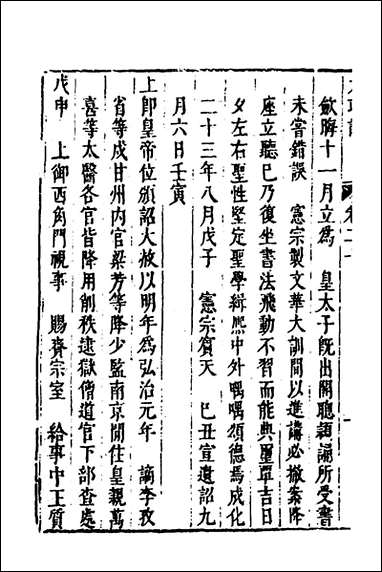 歛脢十一月立爲　皇太子旣出閣聰穎誦所受書
未嘗錯誤　憲宗製文華大訓間以進講必撤案降
座立聽已乃復坐書法飛動不習而能典璽覃吉日
夕左右聖性堅定聖學緝熙中外喁喁頌德焉成化
二十三年八月戊子　憲宗賓天　巳丑宣遺詔九
月六日壬寅
上卽皇帝位頒詔大赦以明年爲弘治元年　謫李孜
省等戍甘州内官梁芳等降少監南京閒住皇親萬
喜等太醫各官皆降用削秩逮獄僧道官下部查處
戊申　上御西角門視事　賜賚宗室　給事中王質